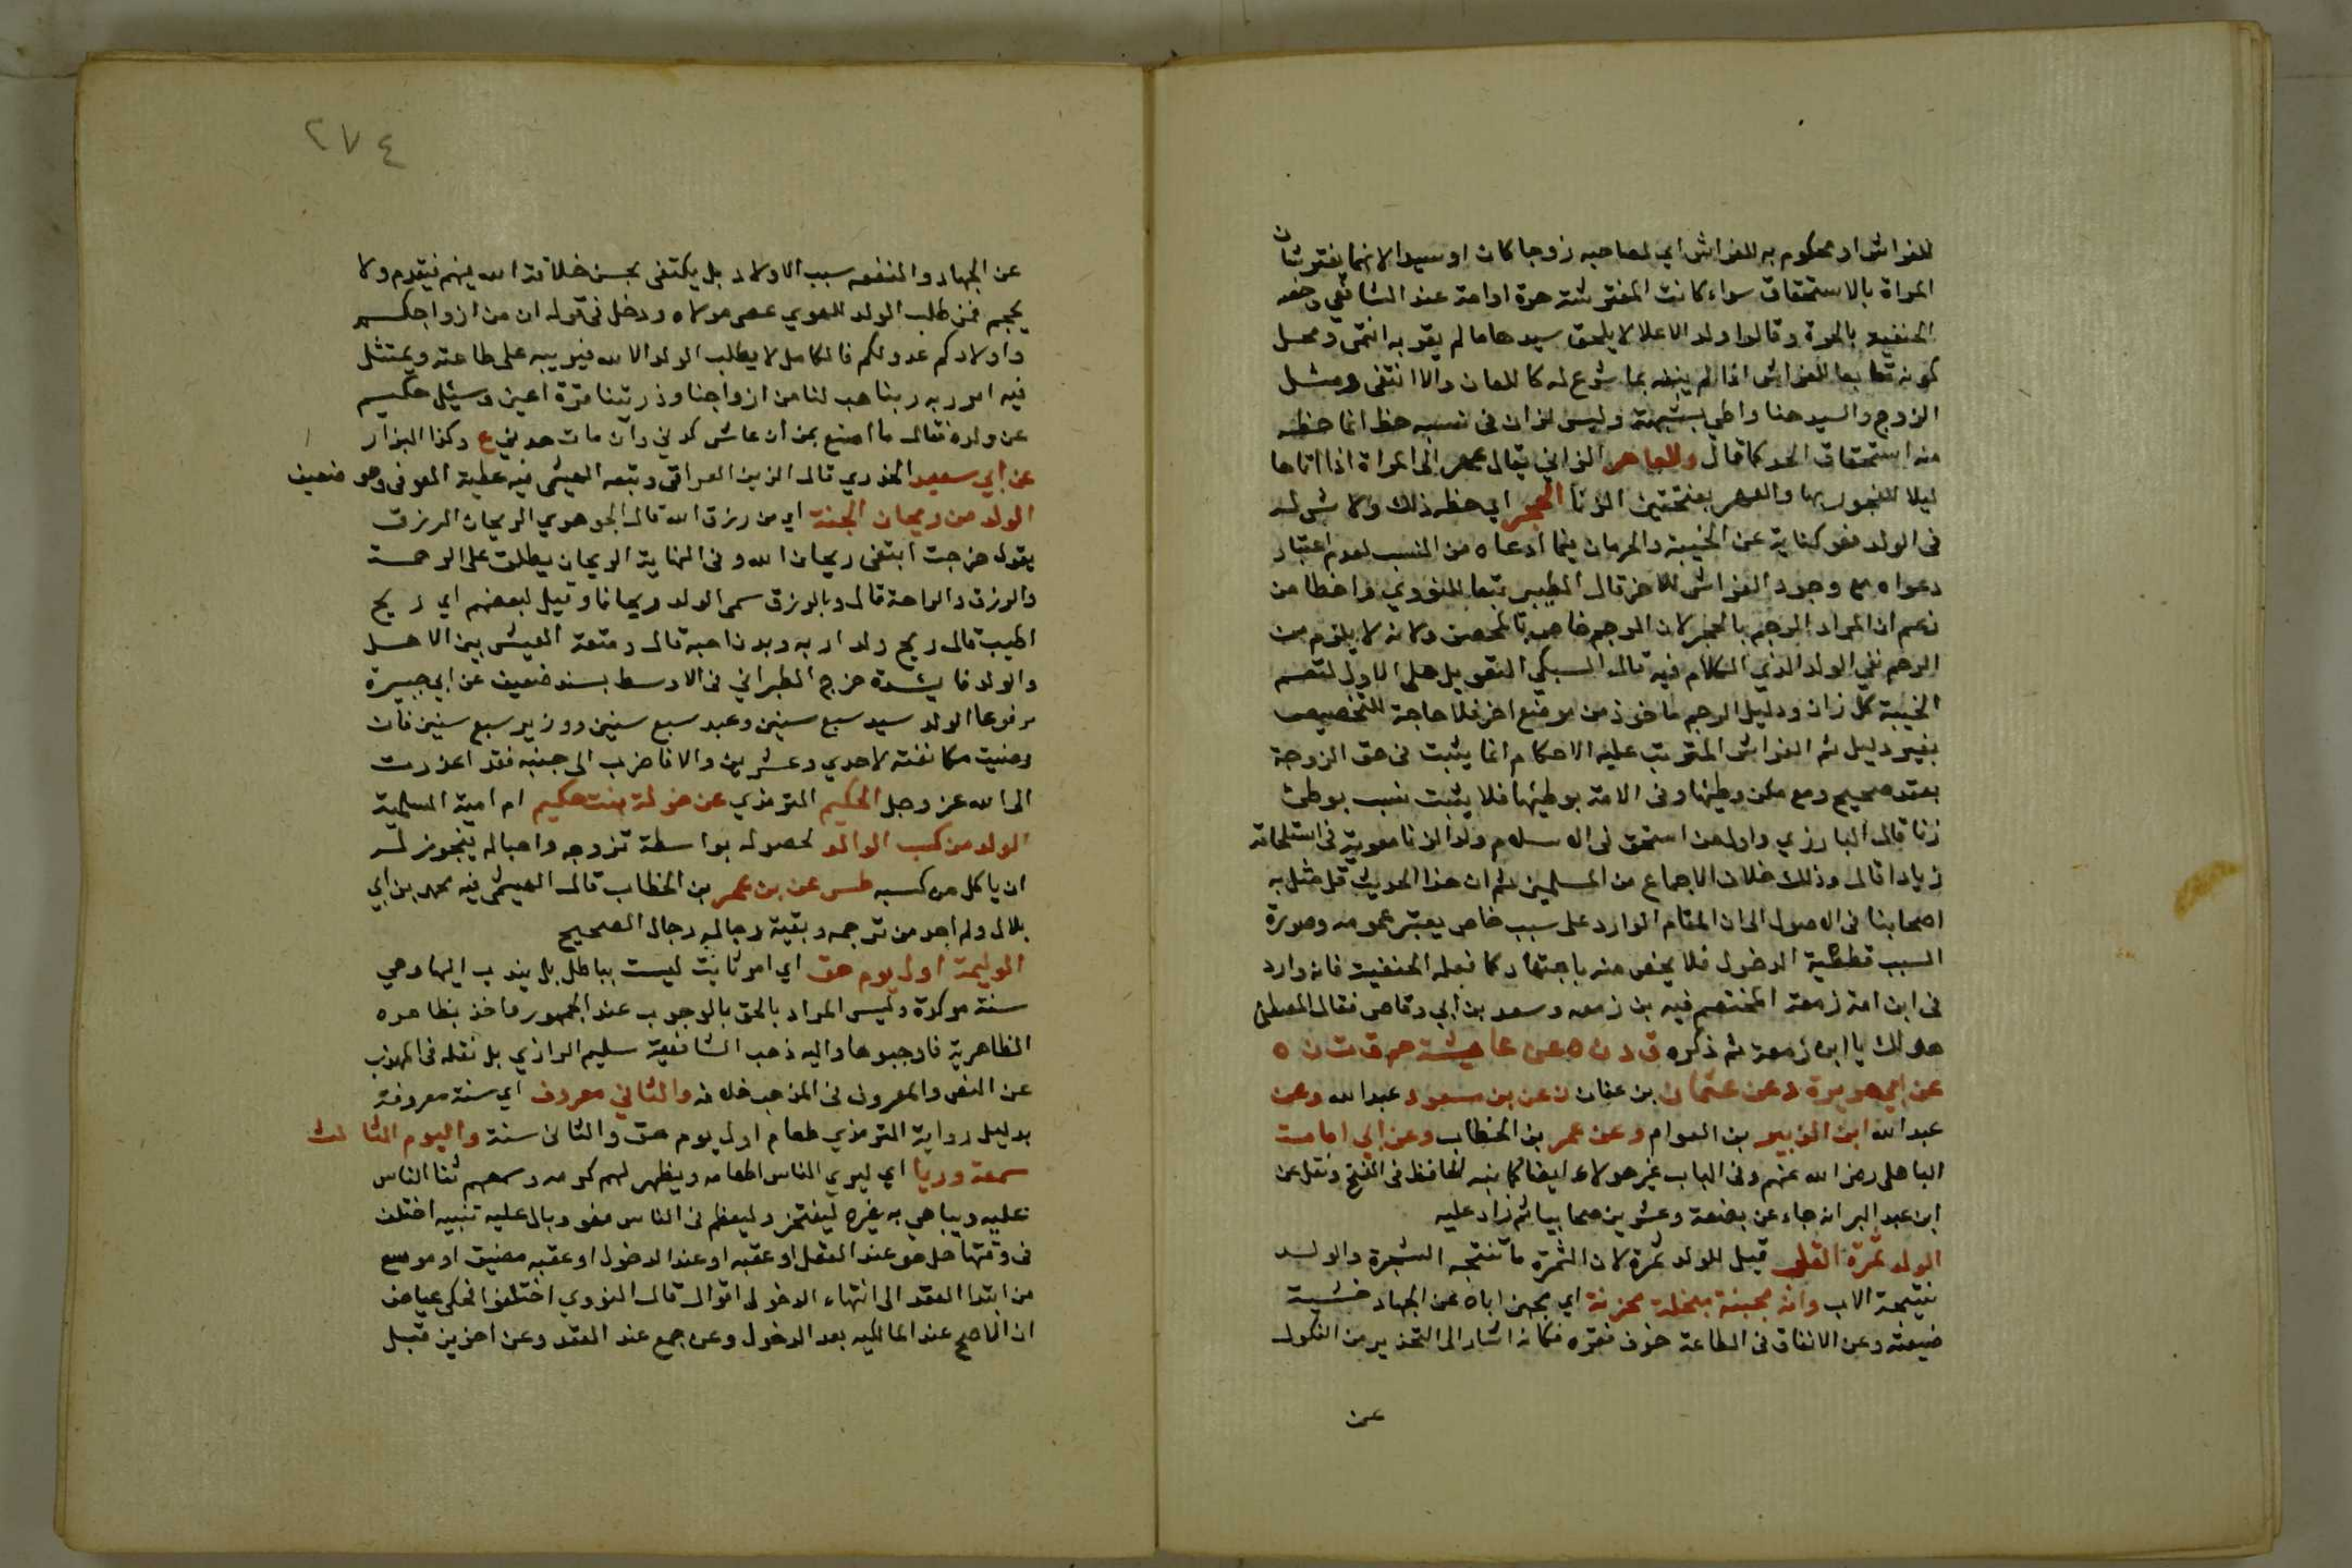 للفراش او محكوم به للفراش اي لصاحبه زوجا كان او سيدا لانهما يفترشان
المراة بالاستحقاق سواء كانت المفترشة حرة او امة عند الشافعي وخصه
الحنفية بالحرة وقالوا ولد الامة لا يلحق سيدها ما لم يقر به انتهى ومحل
كونه تابعا للفراش اذا لم ينفه بما شرع له كاللعان والا انتفى ومثل
الزوج والسيد هنا واطي بشبهة وليس لزان في نسبه حظ انما حظه
منه استحقاق الحد كما قال وللعاهر الزاني يقال عهر الى المراة اذا اتاها
ليلا للفجور بها والعهر بفتحتين الزنا الحجر اي حظه ذلك ولا شي له
في الولد فهو كناية عن الخيبة والحرمان فيما ادعاه من النسب لعدم اعتبار
دعواه مع وجود الفراش للاخر قال الطيبي تبعا للنووي واخطا من
زعم ان المراد الرجم بالحجر لان الرجم خاص بالمحصن ولانه لا يلزم من
الرجم نفي الولد الذي الكلام فيه قال السبكي التعويل على الاول لتعم
الخيبة كل زان ودليل الرجم ماخوذ من موضع اخر فلا حاجة للتخصيص
بغير دليل ثم الفراش المترتب عليه الاحكام انما يثبت في حق الزوجة
بعقد صحيح ومع مكن وطئها وفي الامة بوطئها فلا يثبت نسب بوطئ
زنا قال البارزي واول من استحق في الاسلام ولد الزنا معوية في استلحاقه
زيادا قال وذلك خلاف الاجماع من المسلمين ثم ان هذا الحديث قل مثل به
اصحابنا في الاصول الى ان المقام الوارد على سبب خاص يعتبر عمومه وصورة
السبب قطعية الدخول فلا يخص منه باجتهاد كما فعله الحنفية فانه وارد
في ابن امة زمعة المختصم فيه بن زمعه وسعد بن ابي وقاص فقال المصطفى
هو لك يا ابن زمعة ثم ذكره ق د ن ه عن عايشة حم ق ت ن ه
عن ابي هريرة د عن عثمان بن عفان ن عن بن مسعود عبد الله وعن
عبد الله ابن الزبير بن العوام وعن عمر بن الخطاب وعن ابي امامة
الباهلي رضي الله عنهم وفي الباب غير هولاء ايضا كما بينه الحافظ في الفتح ونقل عن
ابن عبد البر انه جاء عن بضعة وعشرين صحابيا ثم زاد عليه
الولد ثمرة القلب قيل للولد ثمرة لان الثمرة ما تنتجه الشجرة والولد
نتيجة الاب وانه مجبنة مبخلة محزنة اي يجبن اباه عن الجهاد خشية
ضيعته وعن الانفاق في الطاعة خوف فقره فكانه اشار الى التحذير من النكول
عن
٢٧٤
عن الجهاد والنفقه بسبب الاولاد بل يكتفى بحسن خلافة الله فيهم فيتقدم ولا
يحجم فمن طلب الولد للهوي عصى مولاه ودخل في قوله ان من ازواجكم
واولادكم عدو لكم فالكامل لا يطلب الولد الا لله فيربيه على طاعته ويمتثل
فيه امر ربه ربنا هب لنا من ازواجنا وذريتنا قرة اعين وسئل حكيم
عن ولده فقال ما اصنع بمن ان عاش كدني وان مات هدني ع وكذا البزار
عن ابي سعيد الخدري قال الزين العراقي وتبعه الهيثمي فيه عطية العوفي وهو ضعيف
الولد من ريحان الجنة اي من رزق الله قال الجوهري الريحان الرزق
يقول خرجت ابتغى ريحان الله وفي النهاية الريحان يطلق على الرحمة
والرزق والراحة قال وبالرزق سمى الولد ريحانا وقيل لبعضهم اي ريح
اطيب قال ريح ولد اربه وبدن احبه قال ومتعة العيش بين الاهل
والولد فايدة خرج الطبراني في الاوسط بسند ضعيف عن ابي جبيرة
مرفوعا الولد سيد سبع سنين وعبد سبع سنين ووزير سبع سنين فان
رضيت مكانفته لاحدي وعشرين والا فاضرب الى جنبه فقد اعذرت
الى الله عز وجل الحكيم الترمذي عن خولة بنت حكيم ام امية السلمية
الولد من كسب الوالد لحصوله بواسطة تزوجه واحباله فيجوز له
ان ياكل من كسبه طس عن بن عمر بن الخطاب قال الهيثمي فيه محمد بن ابي
بلال ولم اجد من ترجمه وبقية رجاله رجال الصحيح
الوليمة اول يوم حق اي امر ثابت ليست بباطل بل يندب اليها وهي
سنة موكدة وليس المراد بالحق بالوجوب عند الجمهور واخذ بظاهره
الظاهرية فاوجبوها واليه ذهب الشافعية سليم الرازي بل نقله في المهذب
عن النص والمعروف في المذهب خلافه والثاني معروف اي سنة معروفة
بدليل رواية الترمذي طعام اول يوم حق والثاني سنة واليوم الثالث
سمعة وريا اي ليري الناس اطعامه ويظهر لهم كرمه وسمعهم ثنا الناس
عليه ويباهي به غيره ليفتخر وليعظم في الناس فهو وبال عليه تنبيه اختلف
في وقتها هل هو عند العقد او عقبه او عند الدخول او عقبه مضيق او موسع
من ابتدا العقد الى انتهاء الدخول اقوال قال النووي اختلفوا فحكى عياض
ان الاصح عند المالكيه بعد الدخول وعن جمع عند العقد وعن اخرين قبل